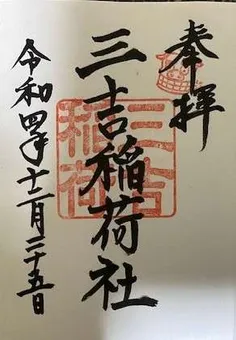 奉拝
三吉稲荷社
三吉
稲荷
令和四年十二月二十五日